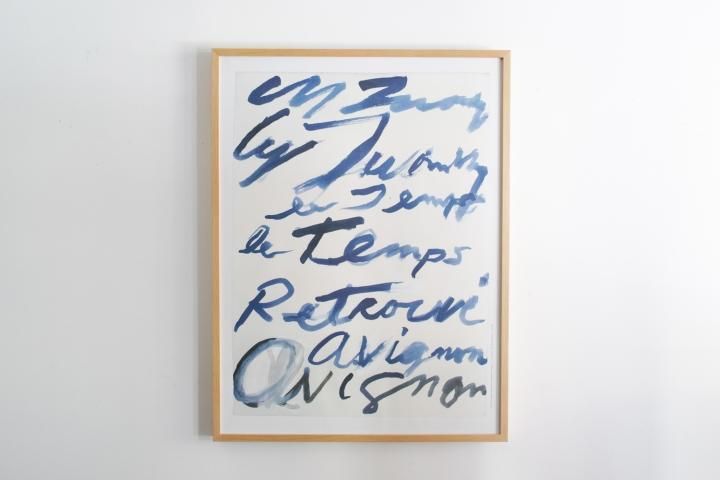 Cy Twombly
le Temps
le Temps
Retrouvé
avignon
AVIGNON